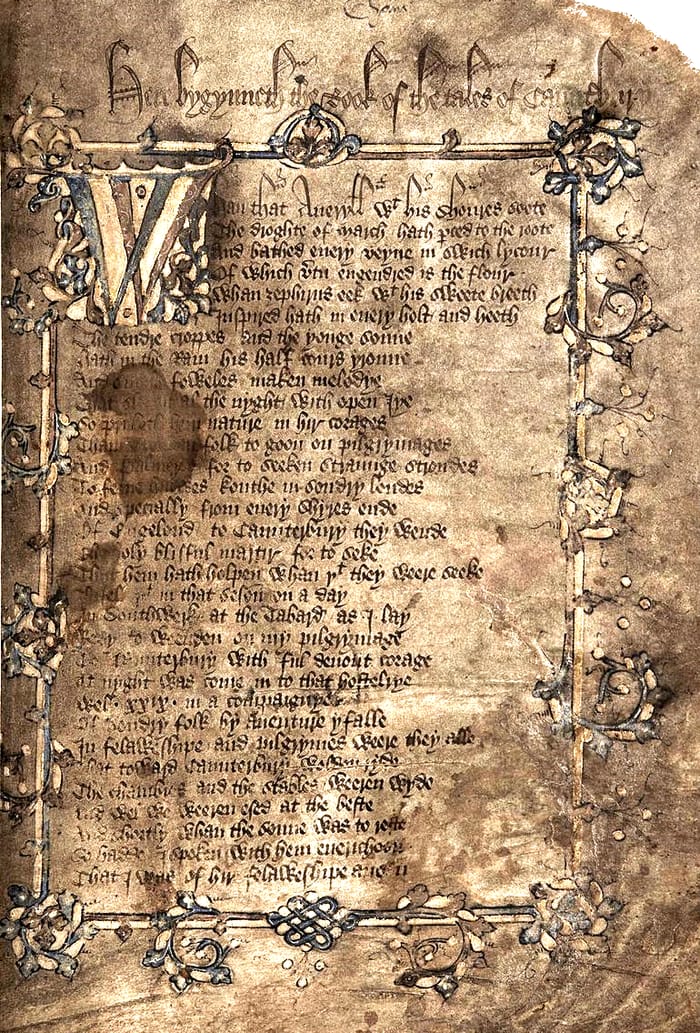 Here bygynneth the Book of the tales of Caunterbury
Whan that Aueryll wt his shoures soote
The droghte of march hath pced to the roote
And bathed euery veyne in swich lycour
Of which vtu engendred is the flour
Whan zephirus eek wt his sweete breeth
Inspired hath in euery holt and heeth
The tendre croppes and the yonge sonne
hath in the Ram his half cours yronne
And foweles maken melodye
That al the nyght with open Iye
So nature in hir corages
folk to goon on pilgrymages
And Palmeres for to seeken straunge strondes
To ferne halwes kouthe in sondry londes
And specially from euery shyres ende
Of Engelond to Caunterbury they wende
The holy blisful martir for to seke
That hem hath holpen whan þt they weere seeke
in that seson on a day
In Southwerk at the Tabard as I lay
Redy to weenden on my pilgrymage
To Caunterbury with ful deuout corage
At nyght was come in to that hostelrye
Wel xxix in a compaignye
Of sondry folk by auenture yfalle
In felaweshipe and pilgrymes weere they alle
That toward Caunterbury wolden ryde
The chambres and the stables weeren wyde
And wel we weeren esed at the beste
And shortly whan the sonne was to reste
So hadde I spoken with hem euerichoon
That I was of hir felaweshipe anon